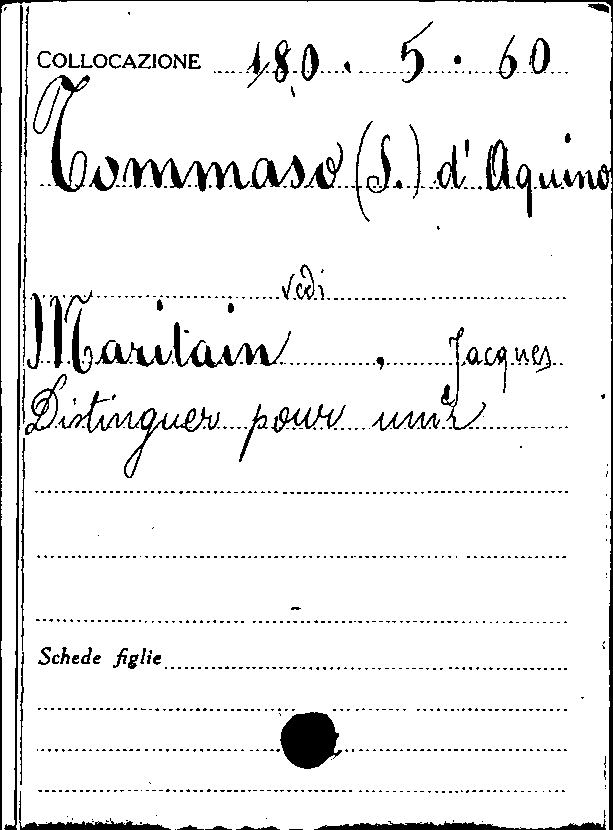 COLLOCAZIONE 180. 5. 60
Tommaso (S.) d'Aquino
vedi
Maritain, Jacques
Distinguer pour unir
Schede figlie